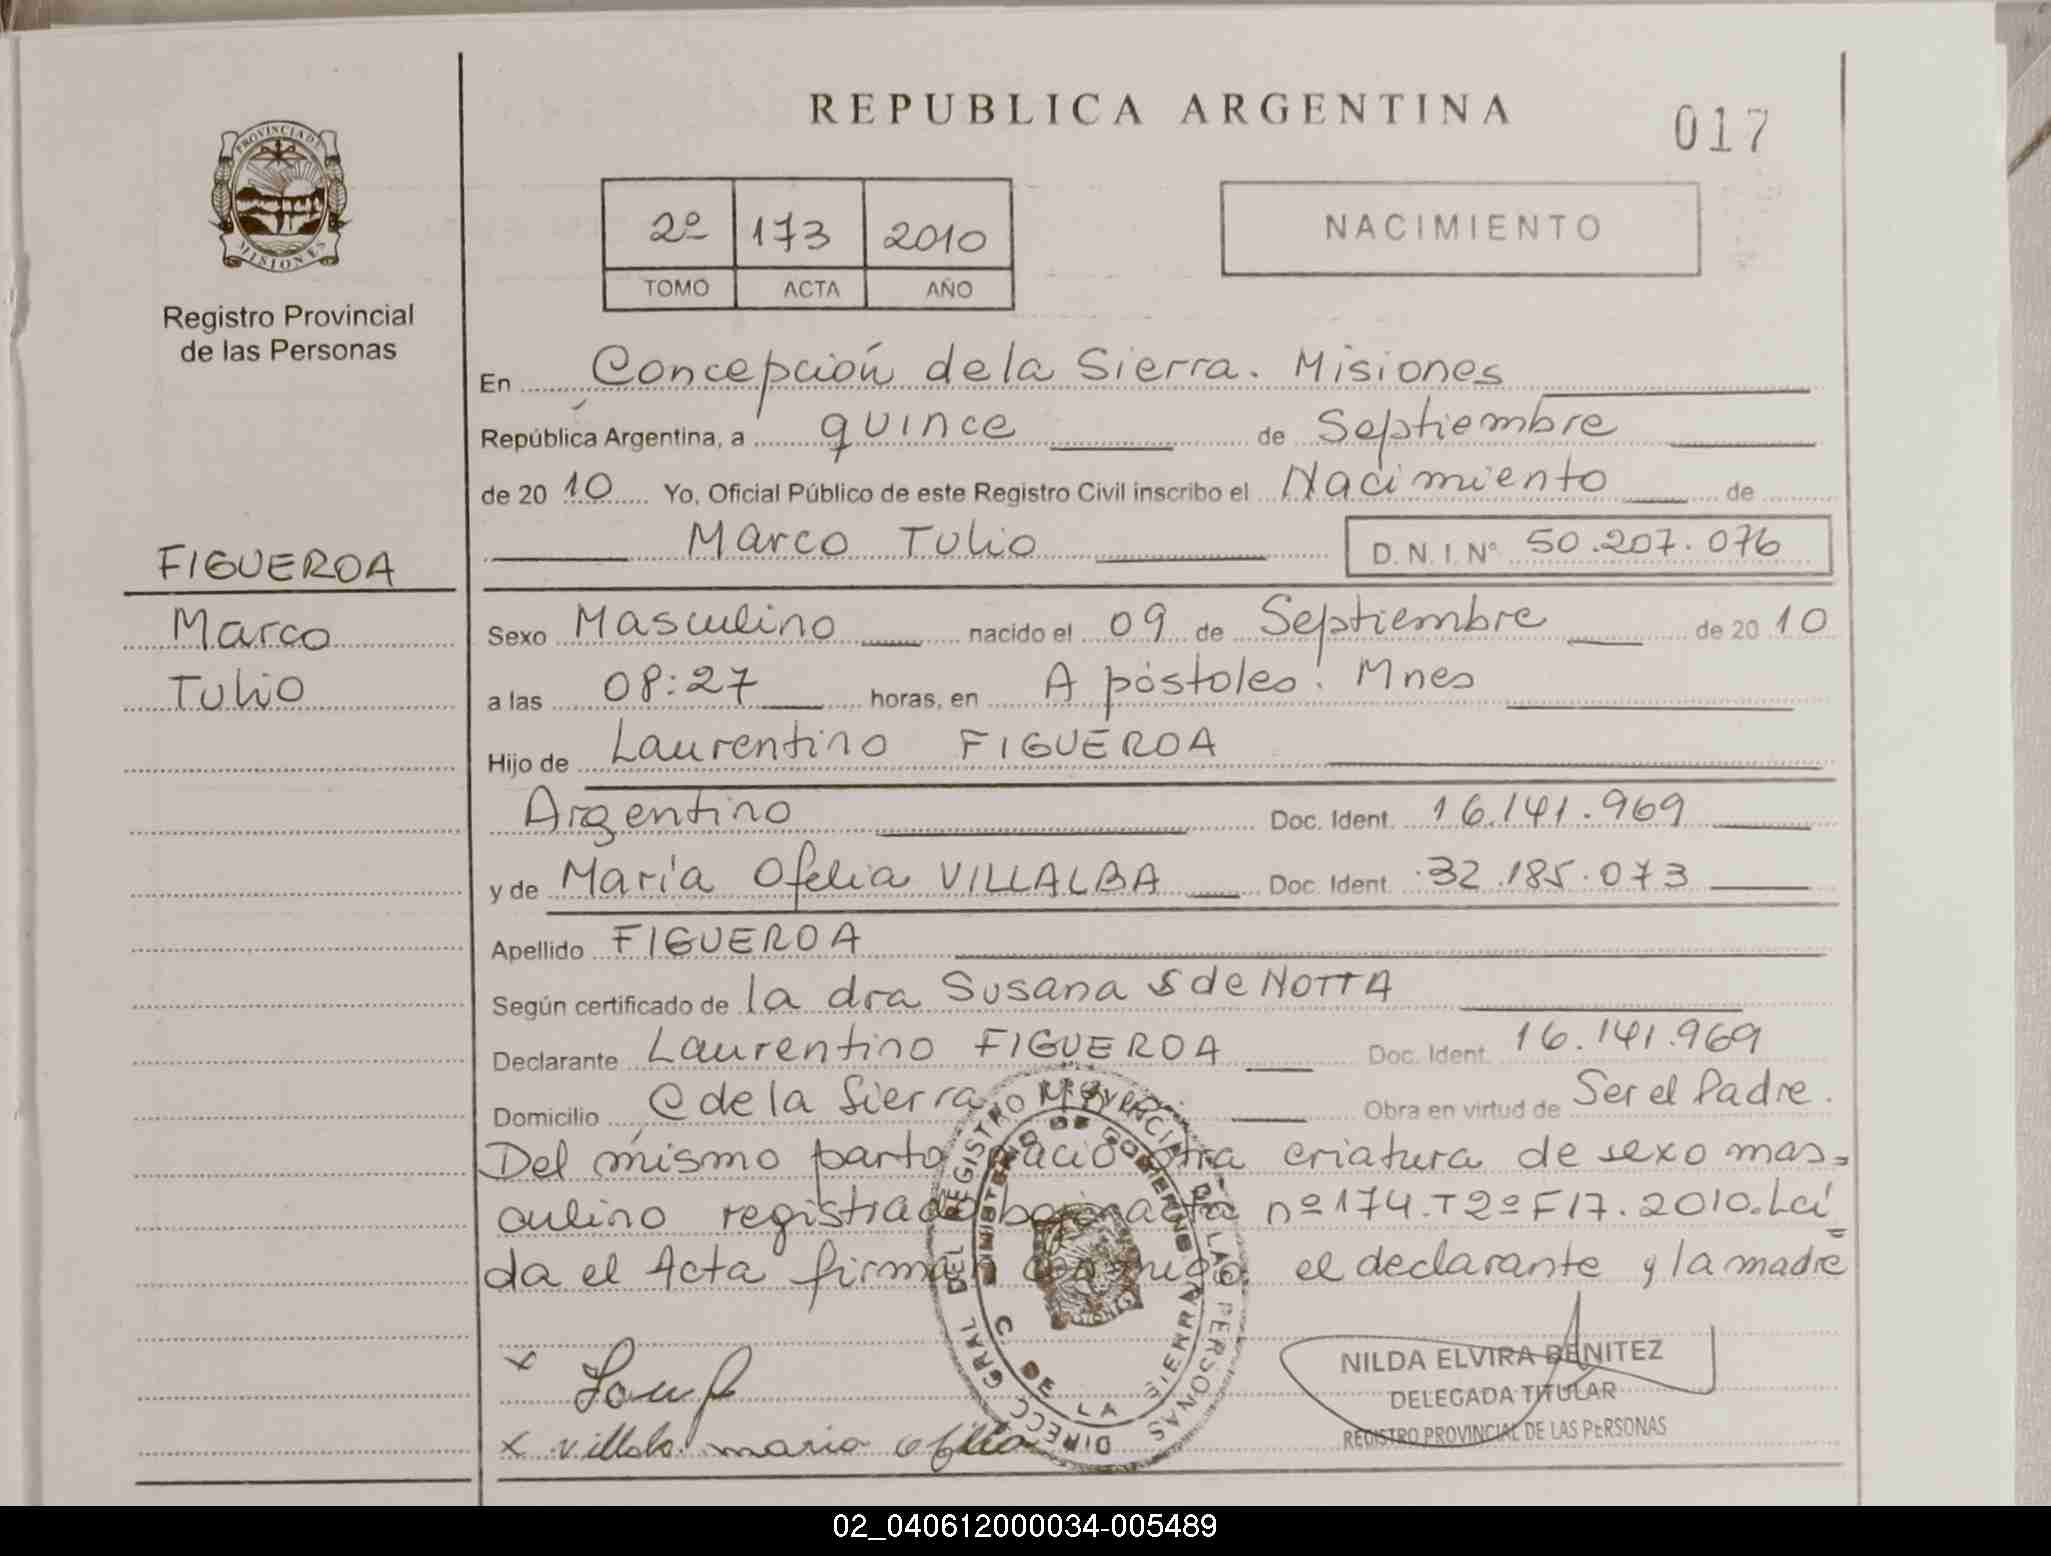 REPUBLICA ARGENTINA
017
PROVINCIA DE
MISIONES
Registro Provincial
de las Personas
2º 173 2010
TOMO ACTA AÑO
NACIMIENTO
En Concepción de la Sierra. Misiones
República Argentina, a quince de Septiembre
de 20 10 Yo, Oficial Público de este Registro Civil inscribo el Nacimiento de
Marco Tulio D.N.I. Nº 50.207.076
FIGUEROA
Marco
Tulio
Sexo Masculino nacido el 09 de Septiembre de 20 10
a las 08:27 horas, en Apóstoles. Mnes
Hijo de Laurentino FIGUEROA
Argentino Doc. Ident. 16.141.969
y de María Ofelia VILLALBA Doc. Ident. 32.185.073
Apellido FIGUEROA
Según certificado de la dra Susana S de NOTTA
Declarante Laurentino FIGUEROA Doc. Ident. 16.141.969
Domicilio C de la Sierra Obra en virtud de Ser el Padre.
Del mismo parto nació otra criatura de sexo mas=
culino registrado bajo acta nº 174.T2ºF17.2010.Leí
da el Acta firman conmigo el declarante y la madre
DIRECC GRAL DEL REGISTRO PROVINCIAL DE LAS PERSONAS
MINISTERIO DE GOBIERNO
C DE LA SIERRA
x villalba maria ofelia
NILDA ELVIRA BENITEZ
DELEGADA TITULAR
REGISTRO PROVINCIAL DE LAS PERSONAS
02_040612000034-005489